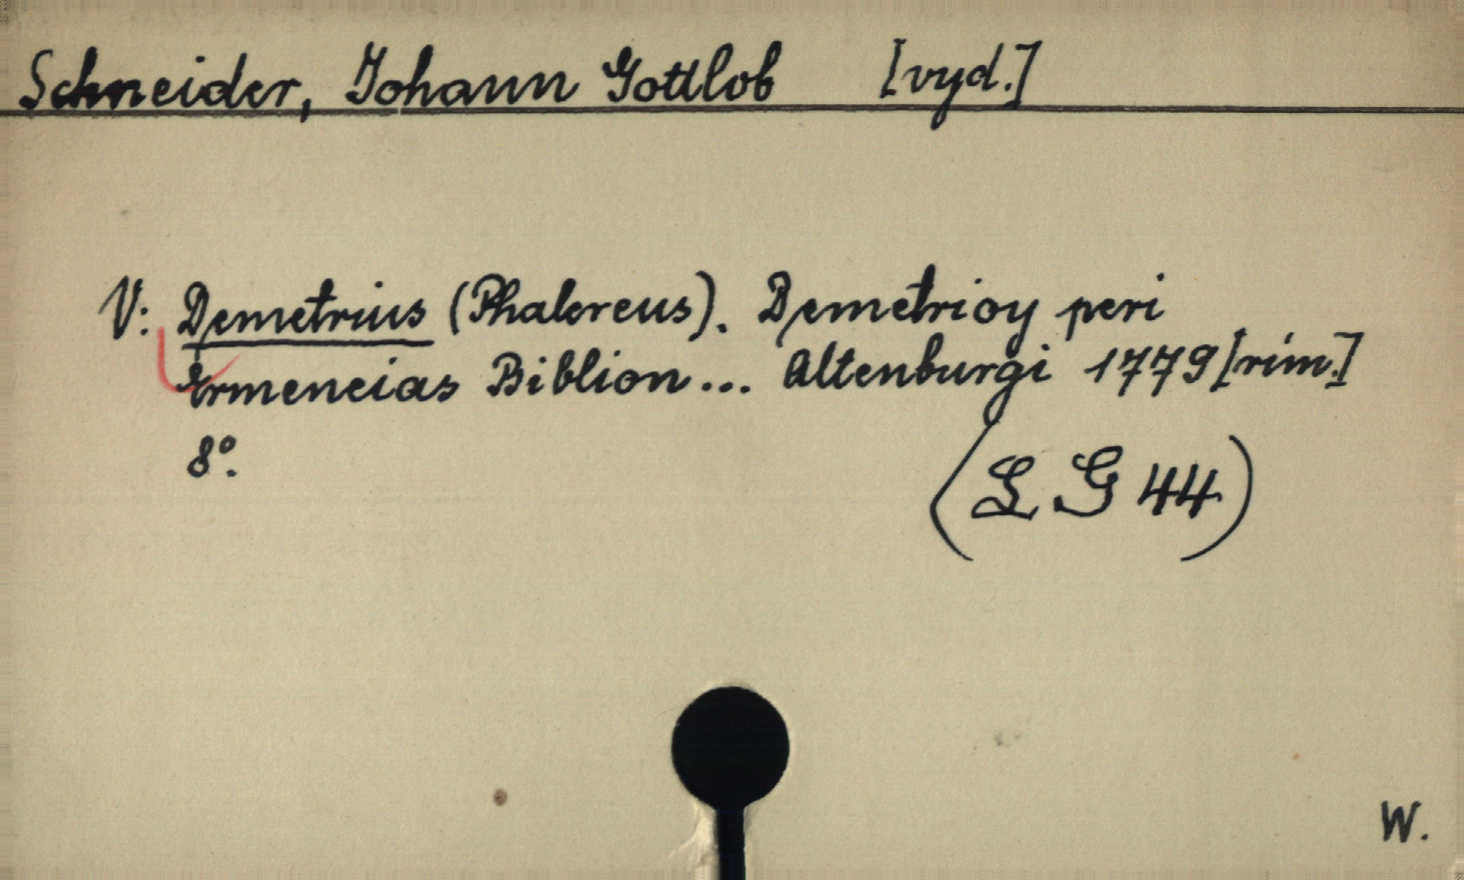 Schneider, Johann Gottlob [vyd.]
V: Demetrius (Phalereus). Demetrioy peri
Ermeneias Biblion... Altenburgi 1779 [rím.]
8°.
(L G 44)
W.